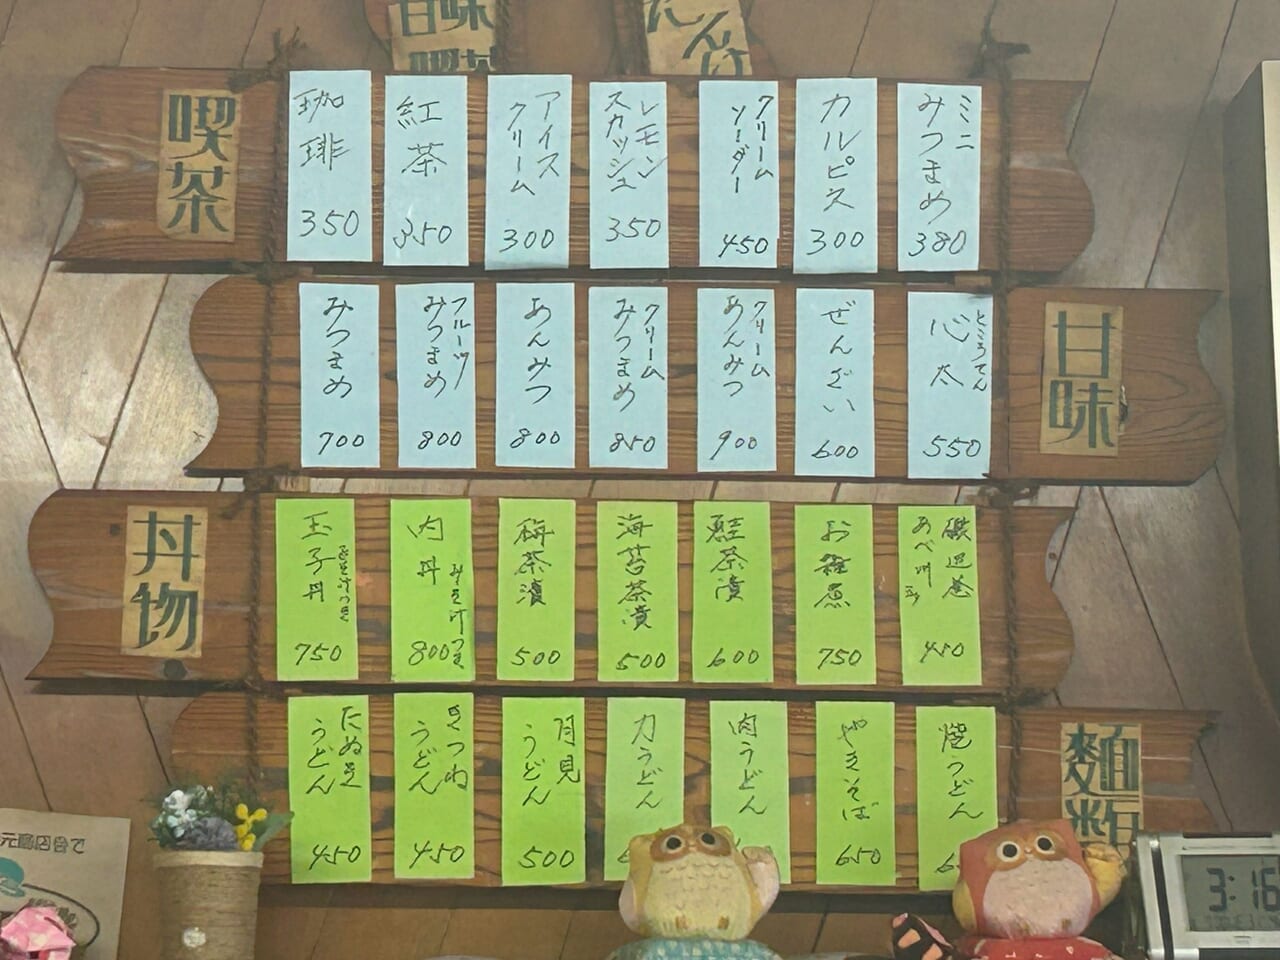 甘味
喫茶
にんけ
喫茶
珈琲 350
紅茶 350
アイスクリーム 300
レモンスカッシュ 350
クリームソーダー 450
カルピス 300
ミニみつまめ 380
みつまめ 700
フルーツみつまめ 800
あんみつ 800
クリームみつまめ 850
クリームあんみつ 900
ぜんざい 600
ところてん 心太 550
甘味
丼物
玉子丼 みそ汁つき 750
肉丼 みそ汁つき 800
梅茶漬 500
海苔茶漬 500
鮭茶漬 600
お雑煮 750
磯辺巻 あべ川 450
たぬきうどん 450
きつねうどん 450
月見うどん 500
力うどん
肉うどん
やきそば 650
焼うどん
麺類
3:16